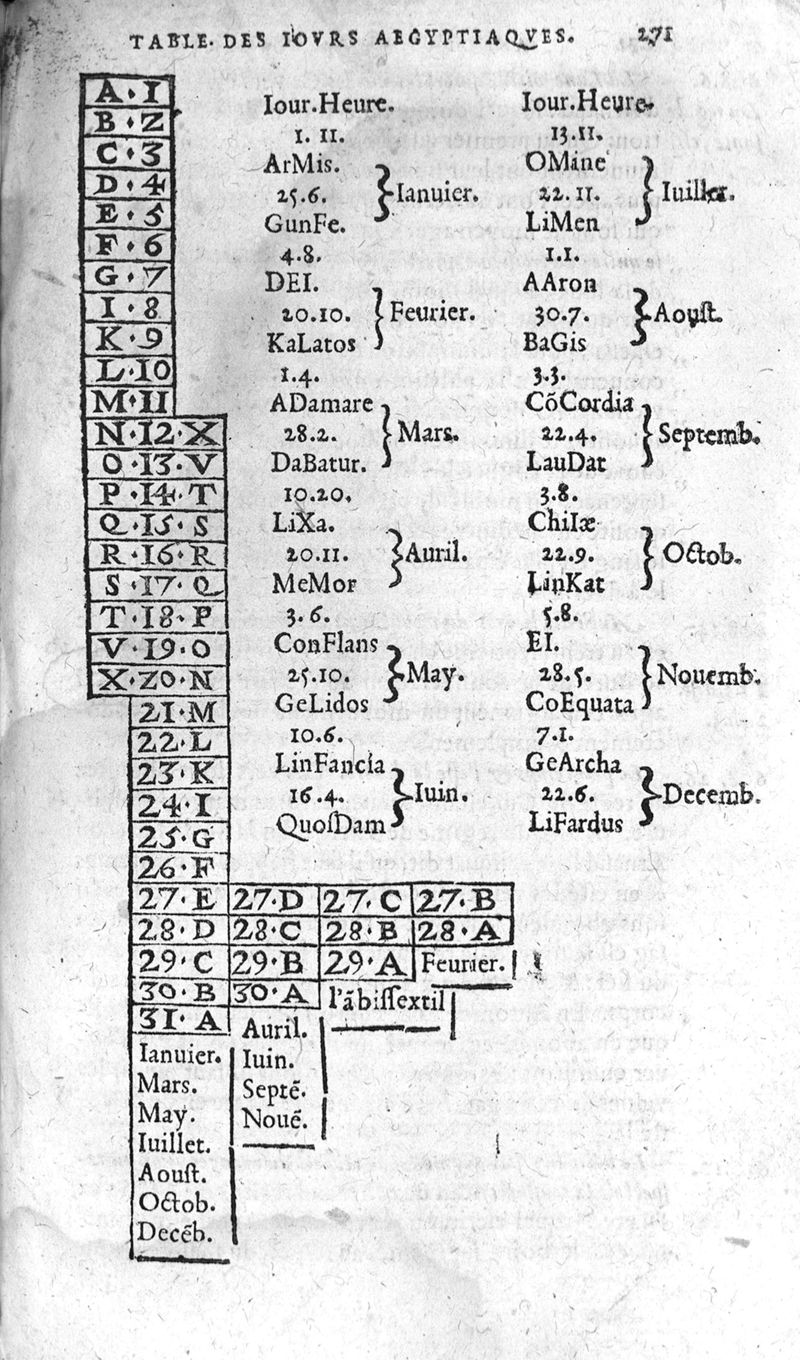 TABLE. DES IOVRS AEGYPTIAQVES. 271
A · 1
B · 2
C · 3
D · 4
E · 5
F · 6
G · 7
I · 8
K · 9
L · 10
M · 11
N · 12 · X
O · 13 · V
P · 14 · T
Q · 15 · S
R · 16 · R
S · 17 · Q
T · 18 · P
V · 19 · O
X · 20 · N
21 · M
22 · L
23 · K
24 · I
25 · G
26 · F
27 · E 27 · D 27 · C 27 · B
28 · D 28 · C 28 · B 28 · A
29 · C 29 · B 29 · A Feurier.
30 · B 30 · A l'ābiſſextil
31 · A
Ianuier.
Mars.
May.
Iuillet.
Aouſt.
Octob.
Decēb.
Auril.
Iuin.
Septē.
Nouē.
Iour.Heure.
1. 11.
ArMis.
25.6. Ianuier.
GunFe.
4.8.
DEI.
20.10. Feurier.
KaLatos
1.4.
ADamare
28.2. Mars.
DaBatur.
10.20.
LiXa.
20.11. Auril.
MeMor
3.6.
ConFlans
25.10. May.
GeLidos
10.6.
LinFancia
16.4. Iuin.
QuoſDam
Iour.Heure.
13.11.
OMine
22.11. Iuillet.
LiMen
1.1.
AAron
30.7. Aouſt.
BaGis
3.3.
CōCordia
22.4. Septemb.
LauDat
3.8.
ChiIæ
22.9. Octob.
LinKat
5.8.
EI.
28.5. Nouemb.
CoEquata
7.1.
GeArcha
22.6. Decemb.
LiFardus